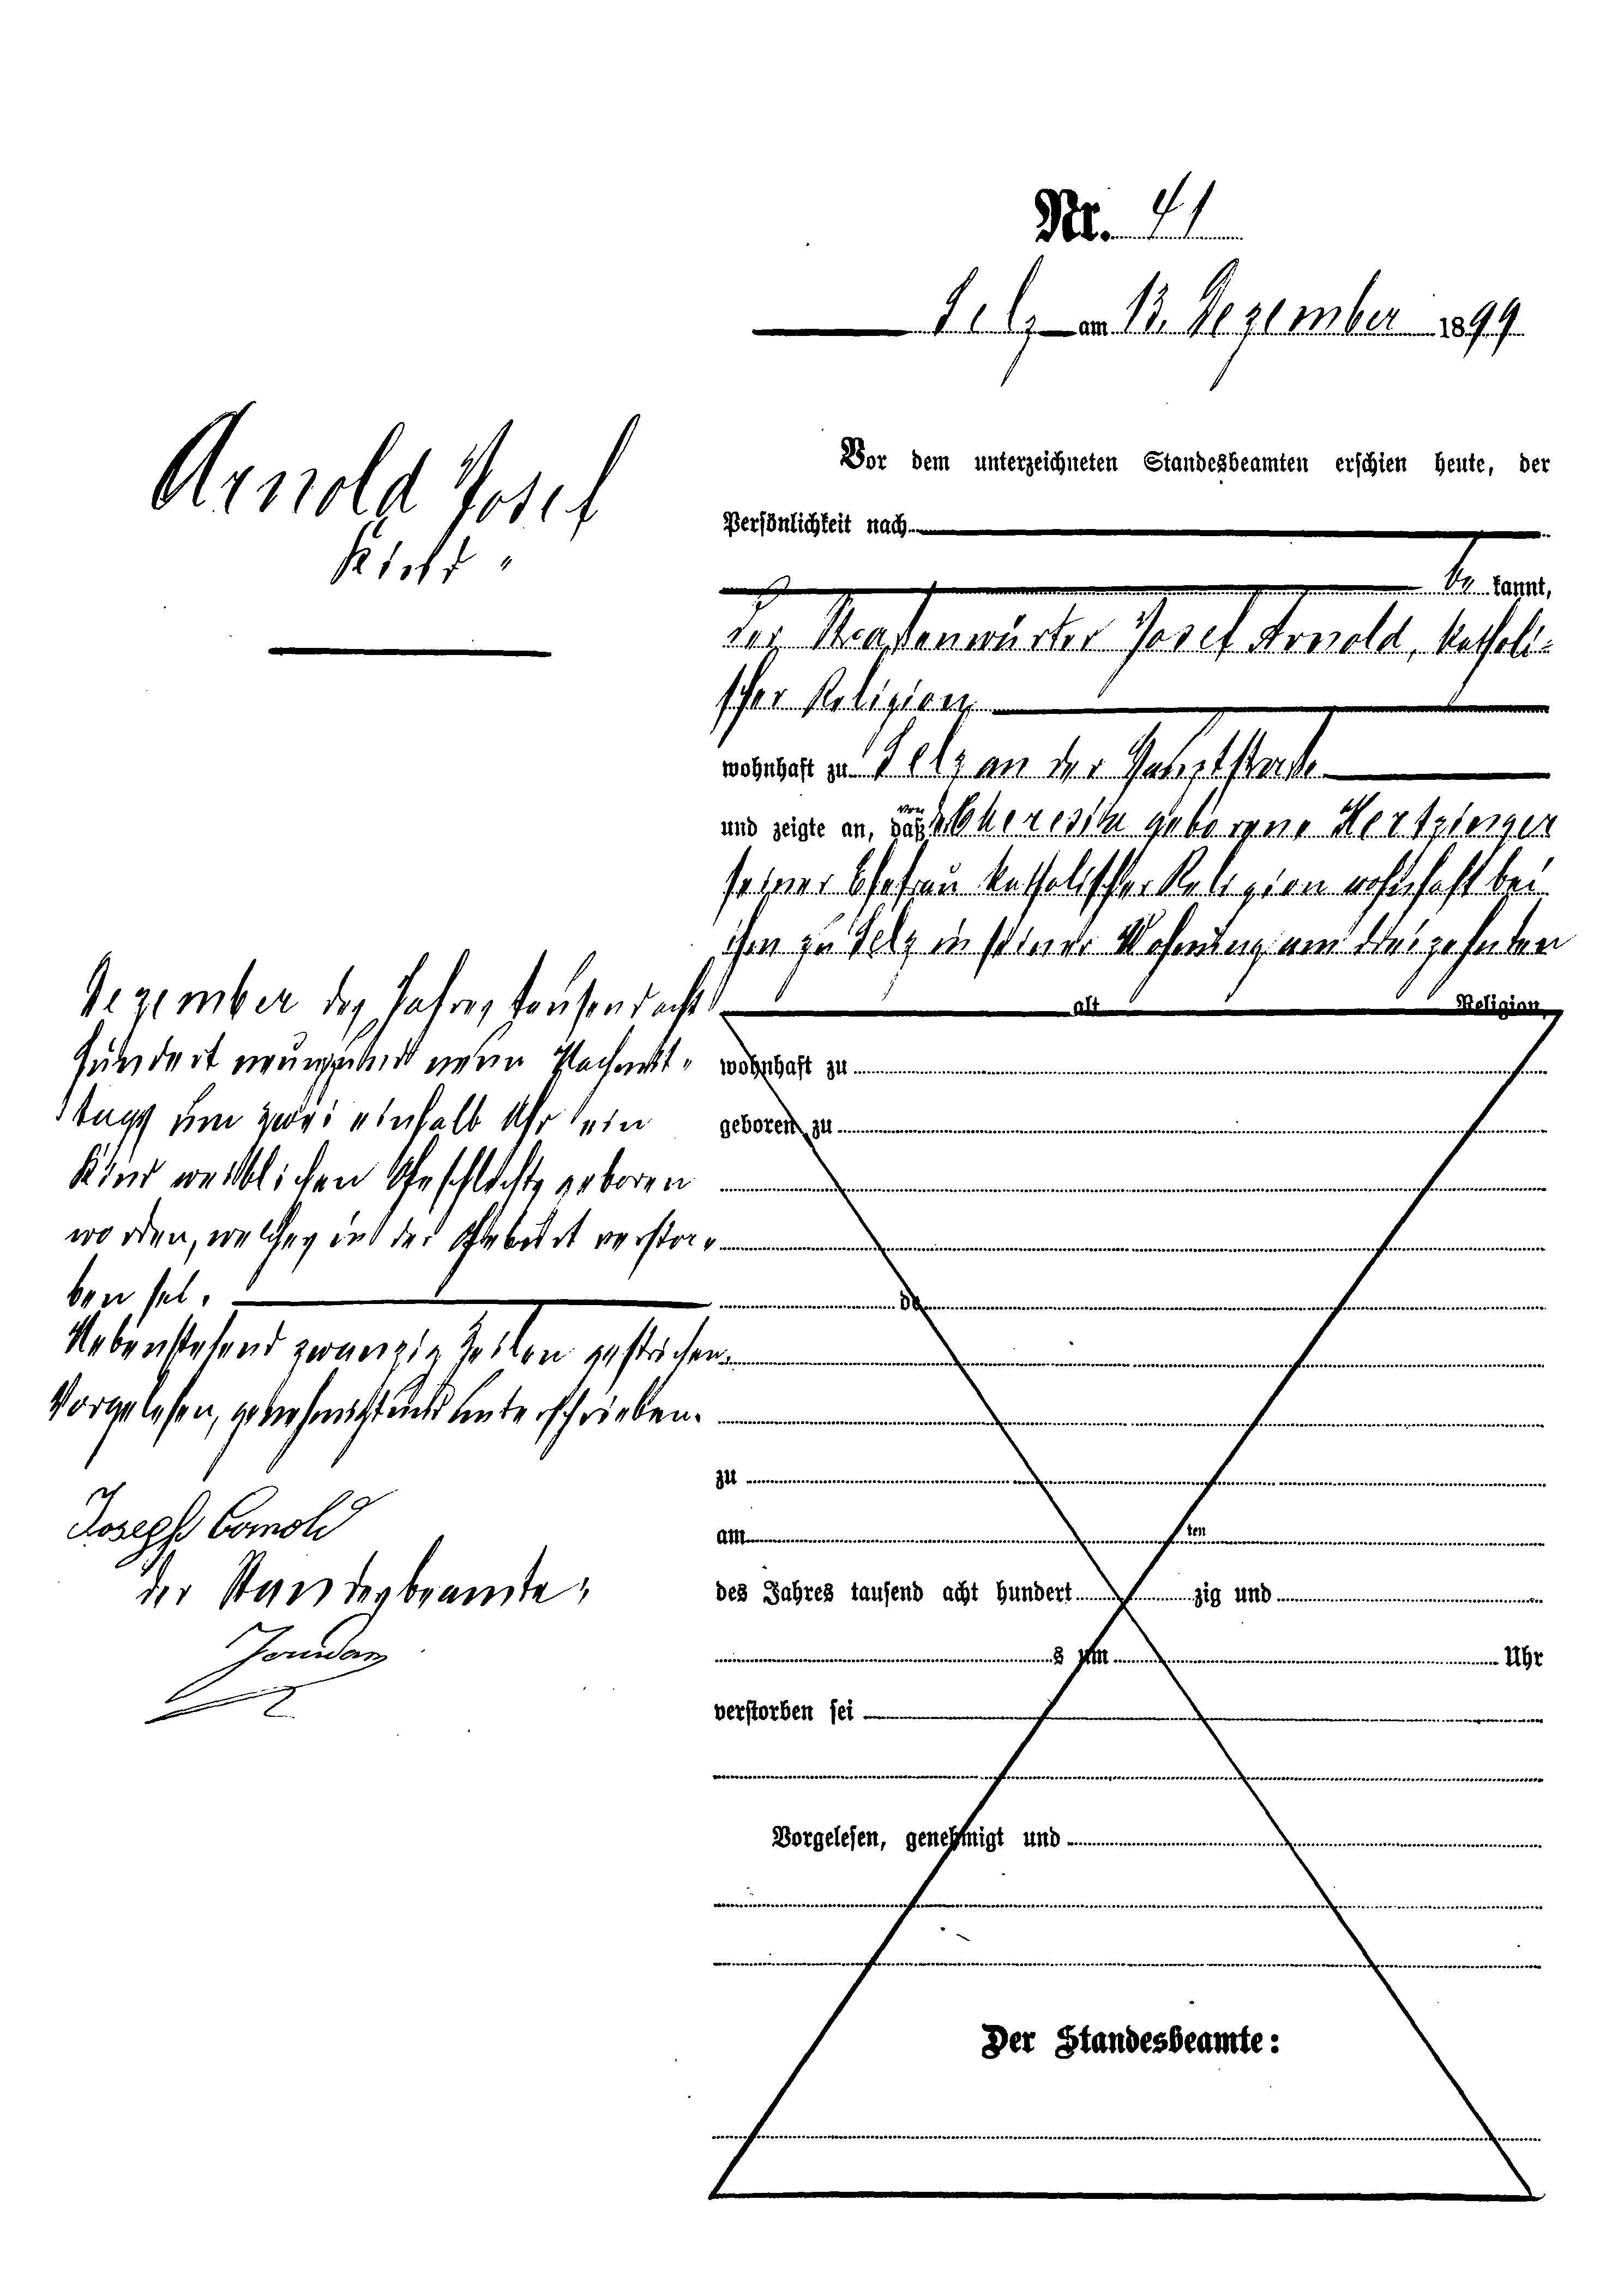 Nr. 41
Selz am 13. Dezember 1899
Arnold Josef
Kind
Vor dem unterzeichneten Standesbeamten erschien heute, der
Persönlichkeit nach
be kannt,
der Straßenwärter Josef Arnold, katholi-
scher Religion
wohnhaft zu Selz an der Hauptstraße
und zeigte an, daß von der Theresia geborene Hertzinger
seiner Ehefrau katholischer Religion wohnhaft bei
ihm zu Selz in seiner Wohnung am dreizehnten
Dezember des Jahres tausend acht
hundert neunzig und neun Nachmit-
tags um zwei einhalb Uhr ein
Kind weiblichen Geschlechts geboren
worden, welches in der Geburt verstor-
ben sei.
Nebenstehend zwanzig Zeilen gestrichen.
Vorgelesen, genehmigt und unterschrieben.
Joseph Arnold
der Standesbeamte:
Jourdan
alt Religion,
wohnhaft zu
geboren zu
de
zu
am ten
des Jahres tausend acht hundert zig und
s um Uhr
verstorben sei
Vorgelesen, genehmigt und
Der Standesbeamte: